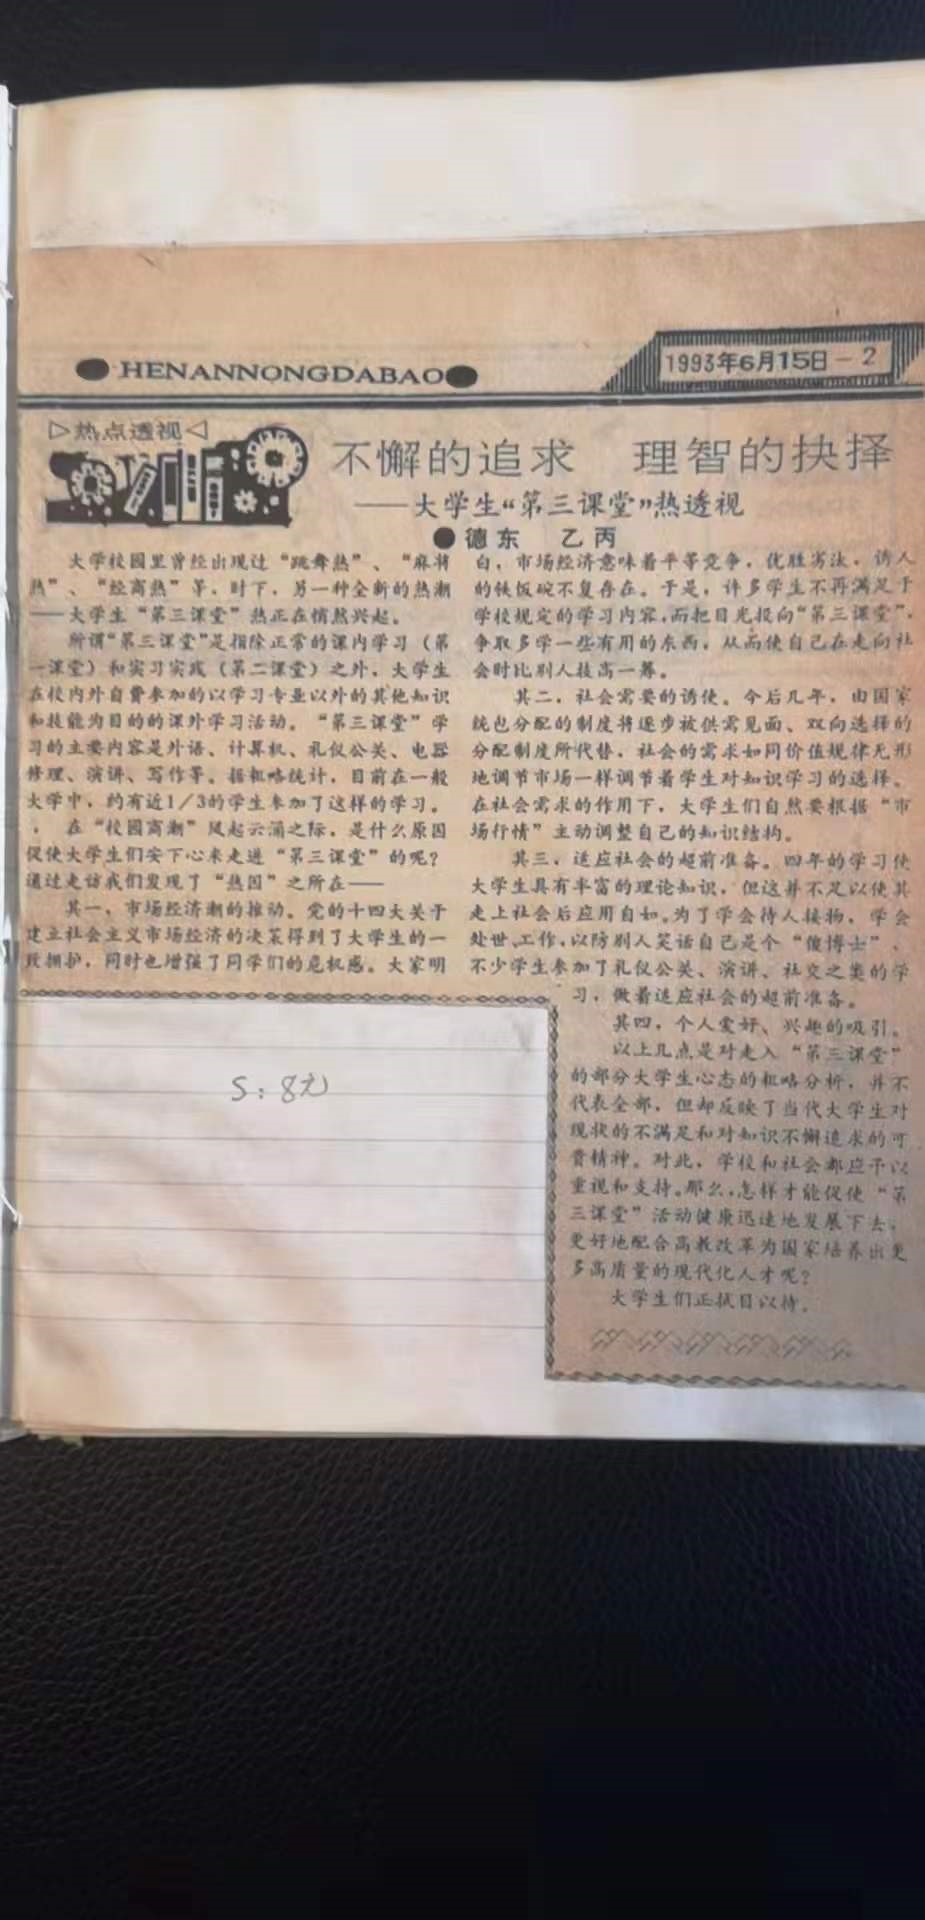 HENANNONGDABAO
1993年6月15日-2
▷热点透视◁
不懈的追求 理智的抉择
——大学生“第三课堂”热透视
●德东 乙丙
大学校园里曾经出现过“跳舞热”、“麻将
热”、“经商热”等，时下，另一种全新的热潮
——大学生“第三课堂”热正在悄然兴起。
所谓“第三课堂”是指除正常的课内学习（第
一课堂）和实习实践（第二课堂）之外，大学生
在校内外自费参加的以学习专业以外的其他知识
和技能为目的的课外学习活动。“第三课堂”学
习的主要内容是外语、计算机、礼仪公关、电器
修理、演讲、写作等。据粗略统计，目前在一般
大学中，约有近1/3的学生参加了这样的学习。
在“校园商潮”风起云涌之际，是什么原因
促使大学生们安下心来走进“第三课堂”的呢？
通过走访我们发现了“热因”之所在——
其一，市场经济潮的推动。党的十四大关于
建立社会主义市场经济的决策得到了大学生的一
致拥护，同时也增强了同学们的危机感。大家明
白，市场经济意味着平等竞争，优胜劣汰，诱人
的铁饭碗不复存在。于是，许多学生不再满足于
学校规定的学习内容，而把目光投向“第三课堂”，
争取多学一些有用的东西，从而使自己在走向社
会时比别人技高一筹。
其二，社会需要的诱使。今后几年，由国家
统包分配的制度将逐步被供需见面、双向选择的
分配制度所代替，社会的需求如同价值规律无形
地调节市场一样调节着学生对知识学习的选择。
在社会需求的作用下，大学生们自然要根据“市
场行情”主动调整自己的知识结构。
其三，适应社会的超前准备。四年的学习使
大学生具有丰富的理论知识，但这并不足以使其
走上社会后应用自如。为了学会待人接物，学会
处世、工作，以防别人笑话自己是个“傻博士”，
不少学生参加了礼仪公关、演讲、社交之类的学
习，做着适应社会的超前准备。
其四，个人爱好、兴趣的吸引。
以上几点是对走入“第三课堂”
的部分大学生心态的粗略分析，并不
代表全部，但却反映了当代大学生对
现状的不满足和对知识不懈追求的可
贵精神。对此，学校和社会都应予以
重视和支持。那么，怎样才能促使“第
三课堂”活动健康迅速地发展下去，
更好地配合高教改革为国家培养出更
多高质量的现代化人才呢？
大学生们正拭目以待。
S：8元